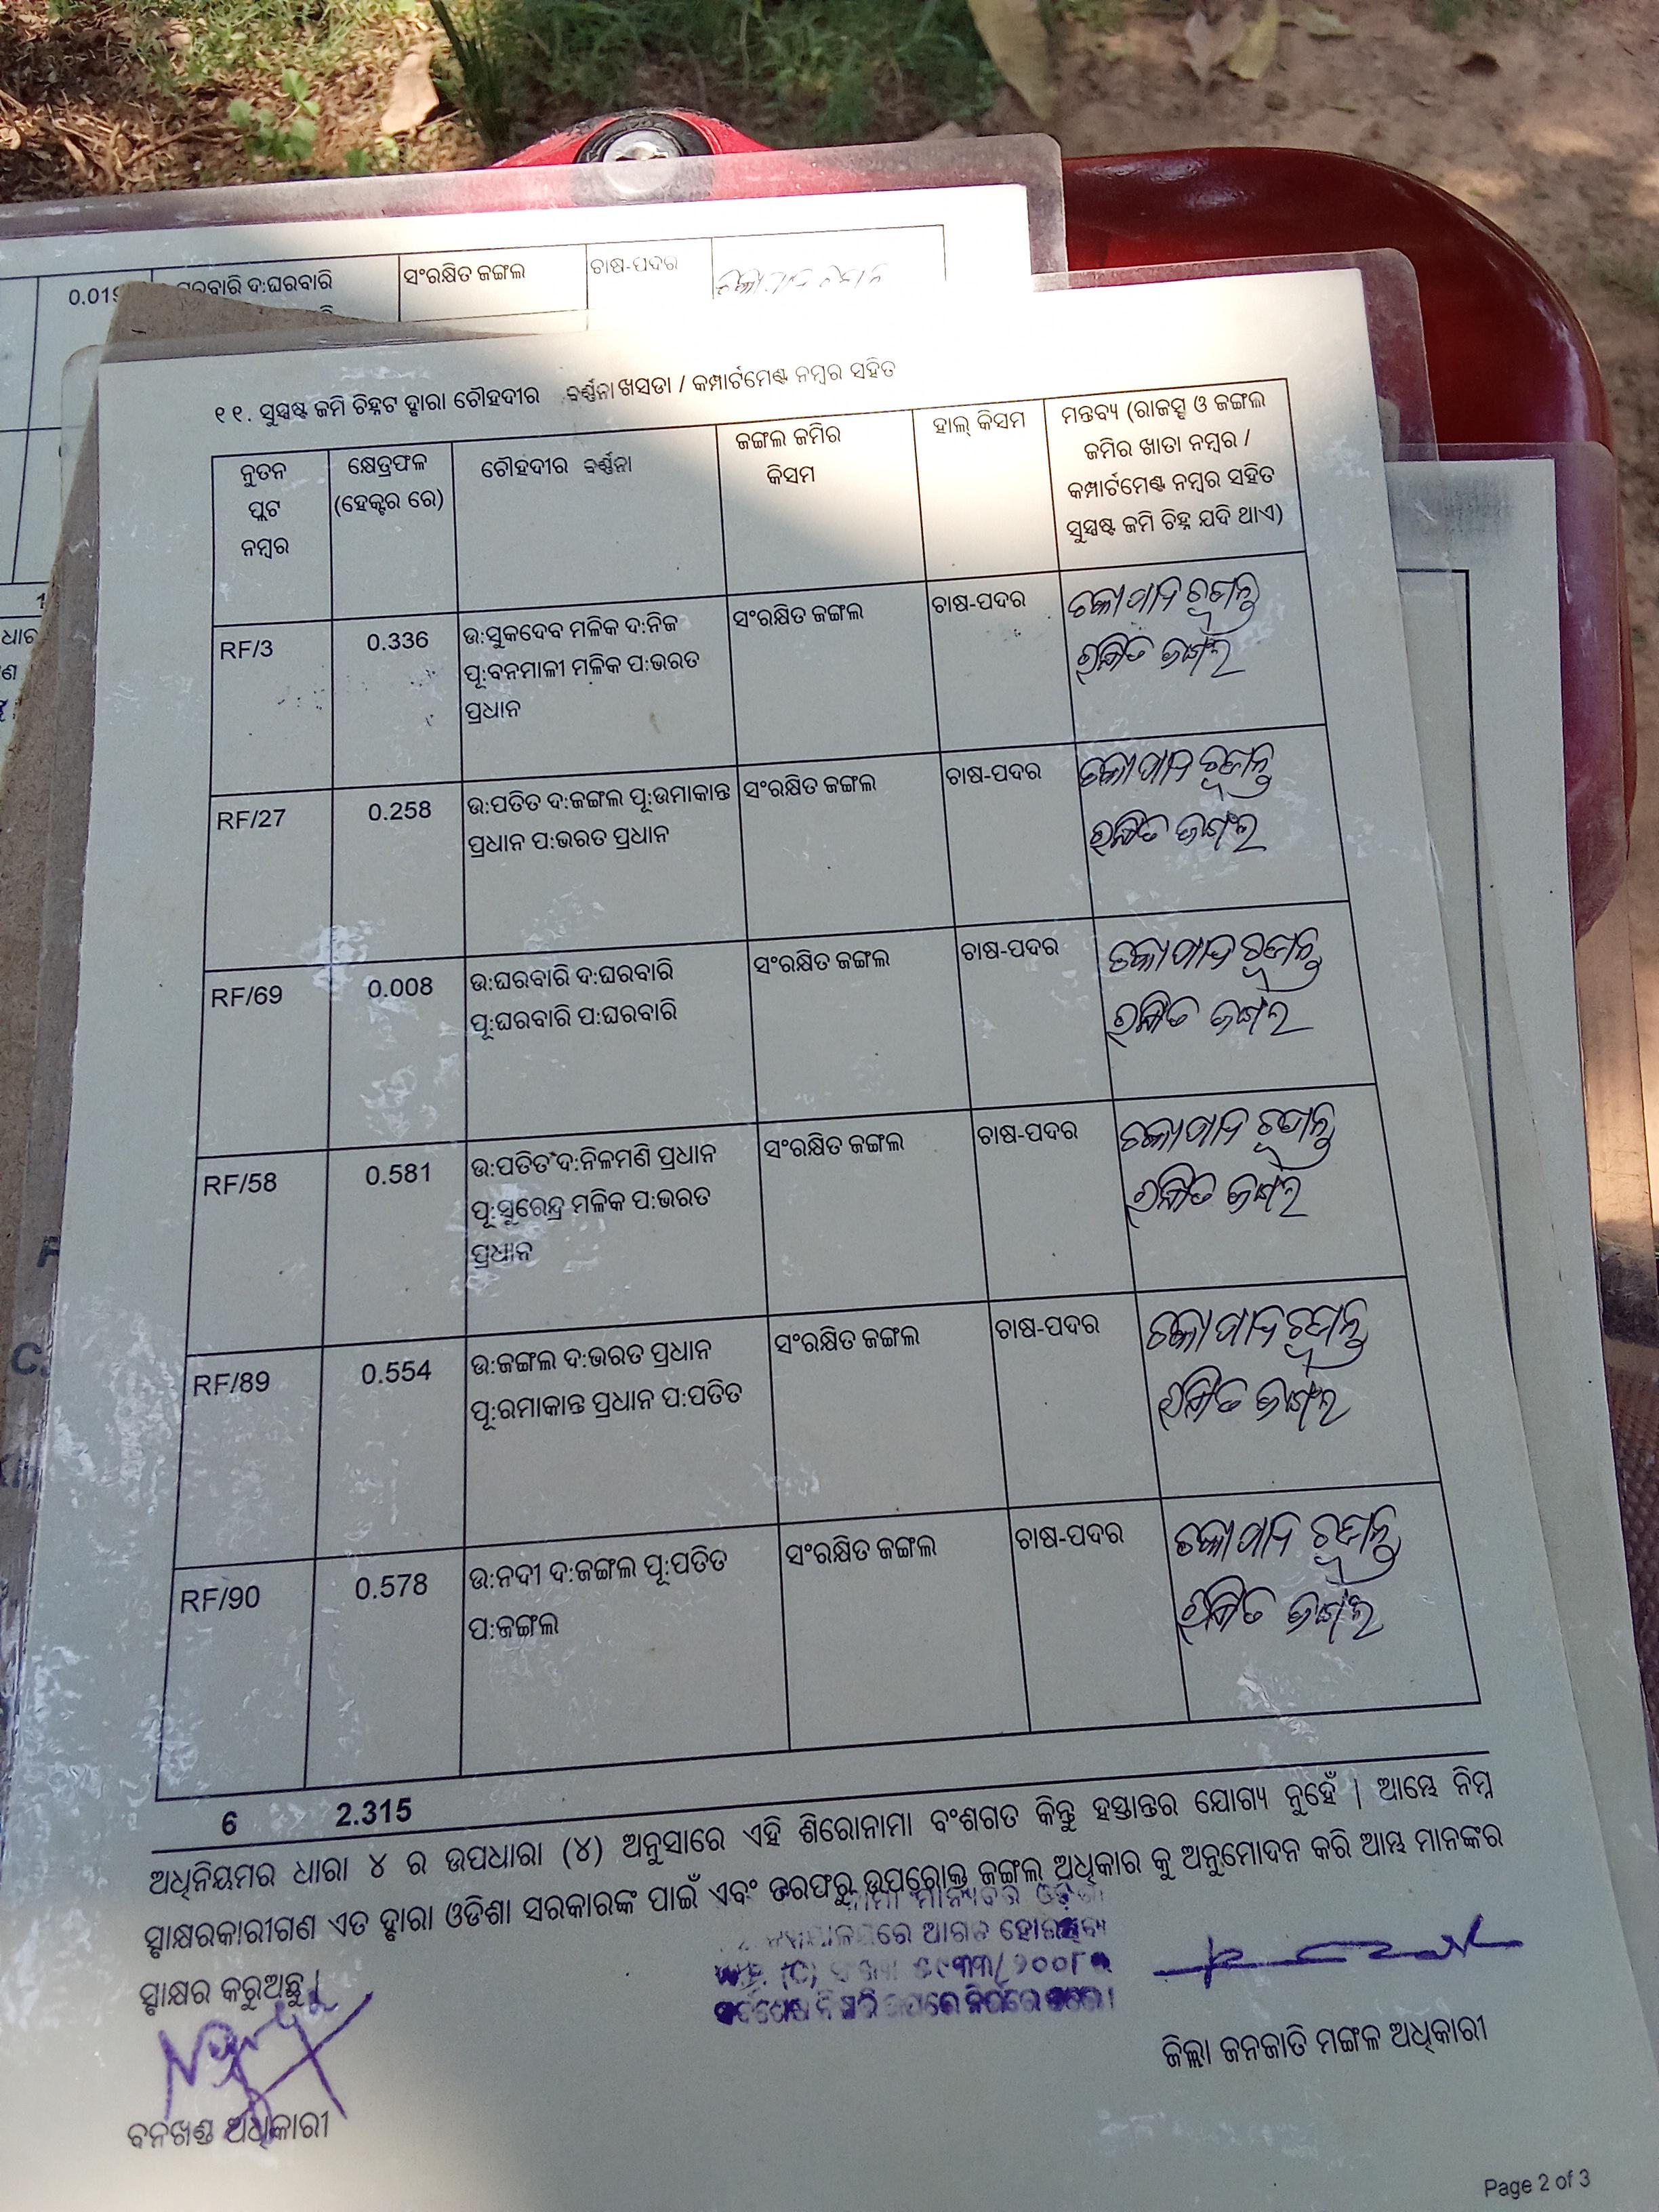 0.019
ଘରବାରି ଦ:ଘରବାରି
ସଂରକ୍ଷିତ ଜଙ୍ଗଲ
ଚାଷ-ପଦର
୧୧. ସୁସ୍ପଷ୍ଟ ଜମି ଚିହ୍ନଟ ଦ୍ବାରା ଚୌହଦୀର ବର୍ଣ୍ଣନା ଖସଡା / କମ୍ପାର୍ଟମେଣ୍ଟ ନମ୍ବର ସହିତ
ନୁତନ ପ୍ଲଟ ନମ୍ବର
କ୍ଷେତ୍ରଫଳ (ହେକ୍ଟର ରେ)
ଚୌହଦୀର ବର୍ଣ୍ଣନା
ଜଙ୍ଗଲ ଜମିର କିସମ
ହାଲ୍ କିସମ
ମନ୍ତବ୍ୟ (ରାଜସ୍ବ ଓ ଜଙ୍ଗଲ
ଜମିର ଖାତା ନମ୍ବର /
କମ୍ପାର୍ଟମେଣ୍ଟ ନମ୍ବର ସହିତ
ସୁସ୍ପଷ୍ଟ ଜମି ଚିହ୍ନ ଯଦି ଥାଏ)
RF/3 0.336 ଉ:ସୁକଦେବ ମଳିକ ଦ:ନିଜ ସଂରକ୍ଷିତ ଜଙ୍ଗଲ ଚାଷ-ପଦର
ପୂ:ବନମାଳୀ ମଳିକ ପ:ଭରତ
ପ୍ରଧାନ
ରକ୍ଷିତ ଜଙ୍ଗଲ
RF/27 0.258 ଉ:ପତିତ ଦ:ଜଙ୍ଗଲ ପୂ:ଉମାକାନ୍ତ ସଂରକ୍ଷିତ ଜଙ୍ଗଲ ଚାଷ-ପଦର
ପ୍ରଧାନ ପ:ଭରତ ପ୍ରଧାନ
ରକ୍ଷିତ ଜଙ୍ଗଲ
RF/69 0.008 ଉ:ଘରବାରି ଦ:ଘରବାରି ସଂରକ୍ଷିତ ଜଙ୍ଗଲ ଚାଷ-ପଦର
ପୂ:ଘରବାରି ପ:ଘରବାରି
ରକ୍ଷିତ ଜଙ୍ଗଲ
RF/58 0.581 ଉ:ପତିତ ଦ:ନିଳମଣି ପ୍ରଧାନ ସଂରକ୍ଷିତ ଜଙ୍ଗଲ ଚାଷ-ପଦର
ପୂ:ସୁରେନ୍ଦ୍ର ମଳିକ ପ:ଭରତ
ପ୍ରଧାନ
ରକ୍ଷିତ ଜଙ୍ଗଲ
RF/89 0.554 ଉ:ଜଙ୍ଗଲ ଦ:ଭରତ ପ୍ରଧାନ ସଂରକ୍ଷିତ ଜଙ୍ଗଲ ଚାଷ-ପଦର
ପୂ:ରମାକାନ୍ତ ପ୍ରଧାନ ପ:ପତିତ
ରକ୍ଷିତ ଜଙ୍ଗଲ
RF/90 0.578 ଉ:ନଦୀ ଦ:ଜଙ୍ଗଲ ପୂ:ପତିତ ସଂରକ୍ଷିତ ଜଙ୍ଗଲ ଚାଷ-ପଦର
ପ:ଜଙ୍ଗଲ
ରକ୍ଷିତ ଜଙ୍ଗଲ
6 2.315
ଅଧିନିୟମର ଧାରା ୪ ର ଉପଧାରା (୪) ଅନୁସାରେ ଏହି ଶିରୋନାମା ବଂଶଗତ କିନ୍ତୁ ହସ୍ତାନ୍ତର ଯୋଗ୍ୟ ନୁହେଁ | ଆମ୍ଭେ ନିମ୍ନ
ସ୍ବାକ୍ଷରକାରୀଗଣ ଏତ ଦ୍ବାରା ଓଡିଶା ସରକାରଙ୍କ ପାଇଁ ଏବଂ ତରଫରୁ ଉପରୋକ୍ତ ଜଙ୍ଗଲ ଅଧିକାର କୁ ଅନୁମୋଦନ କରି ଆମ୍ଭ ମାନଙ୍କର
ସ୍ବାକ୍ଷର କରୁଅଛୁ |
ଆଗତ ହୋଇଥିବା
ବନଖଣ୍ଡ ଅଧିକାରୀ
ଜିଲ୍ଲା ଜନଜାତି ମଙ୍ଗଳ ଅଧିକାରୀ
Page 2 of 3